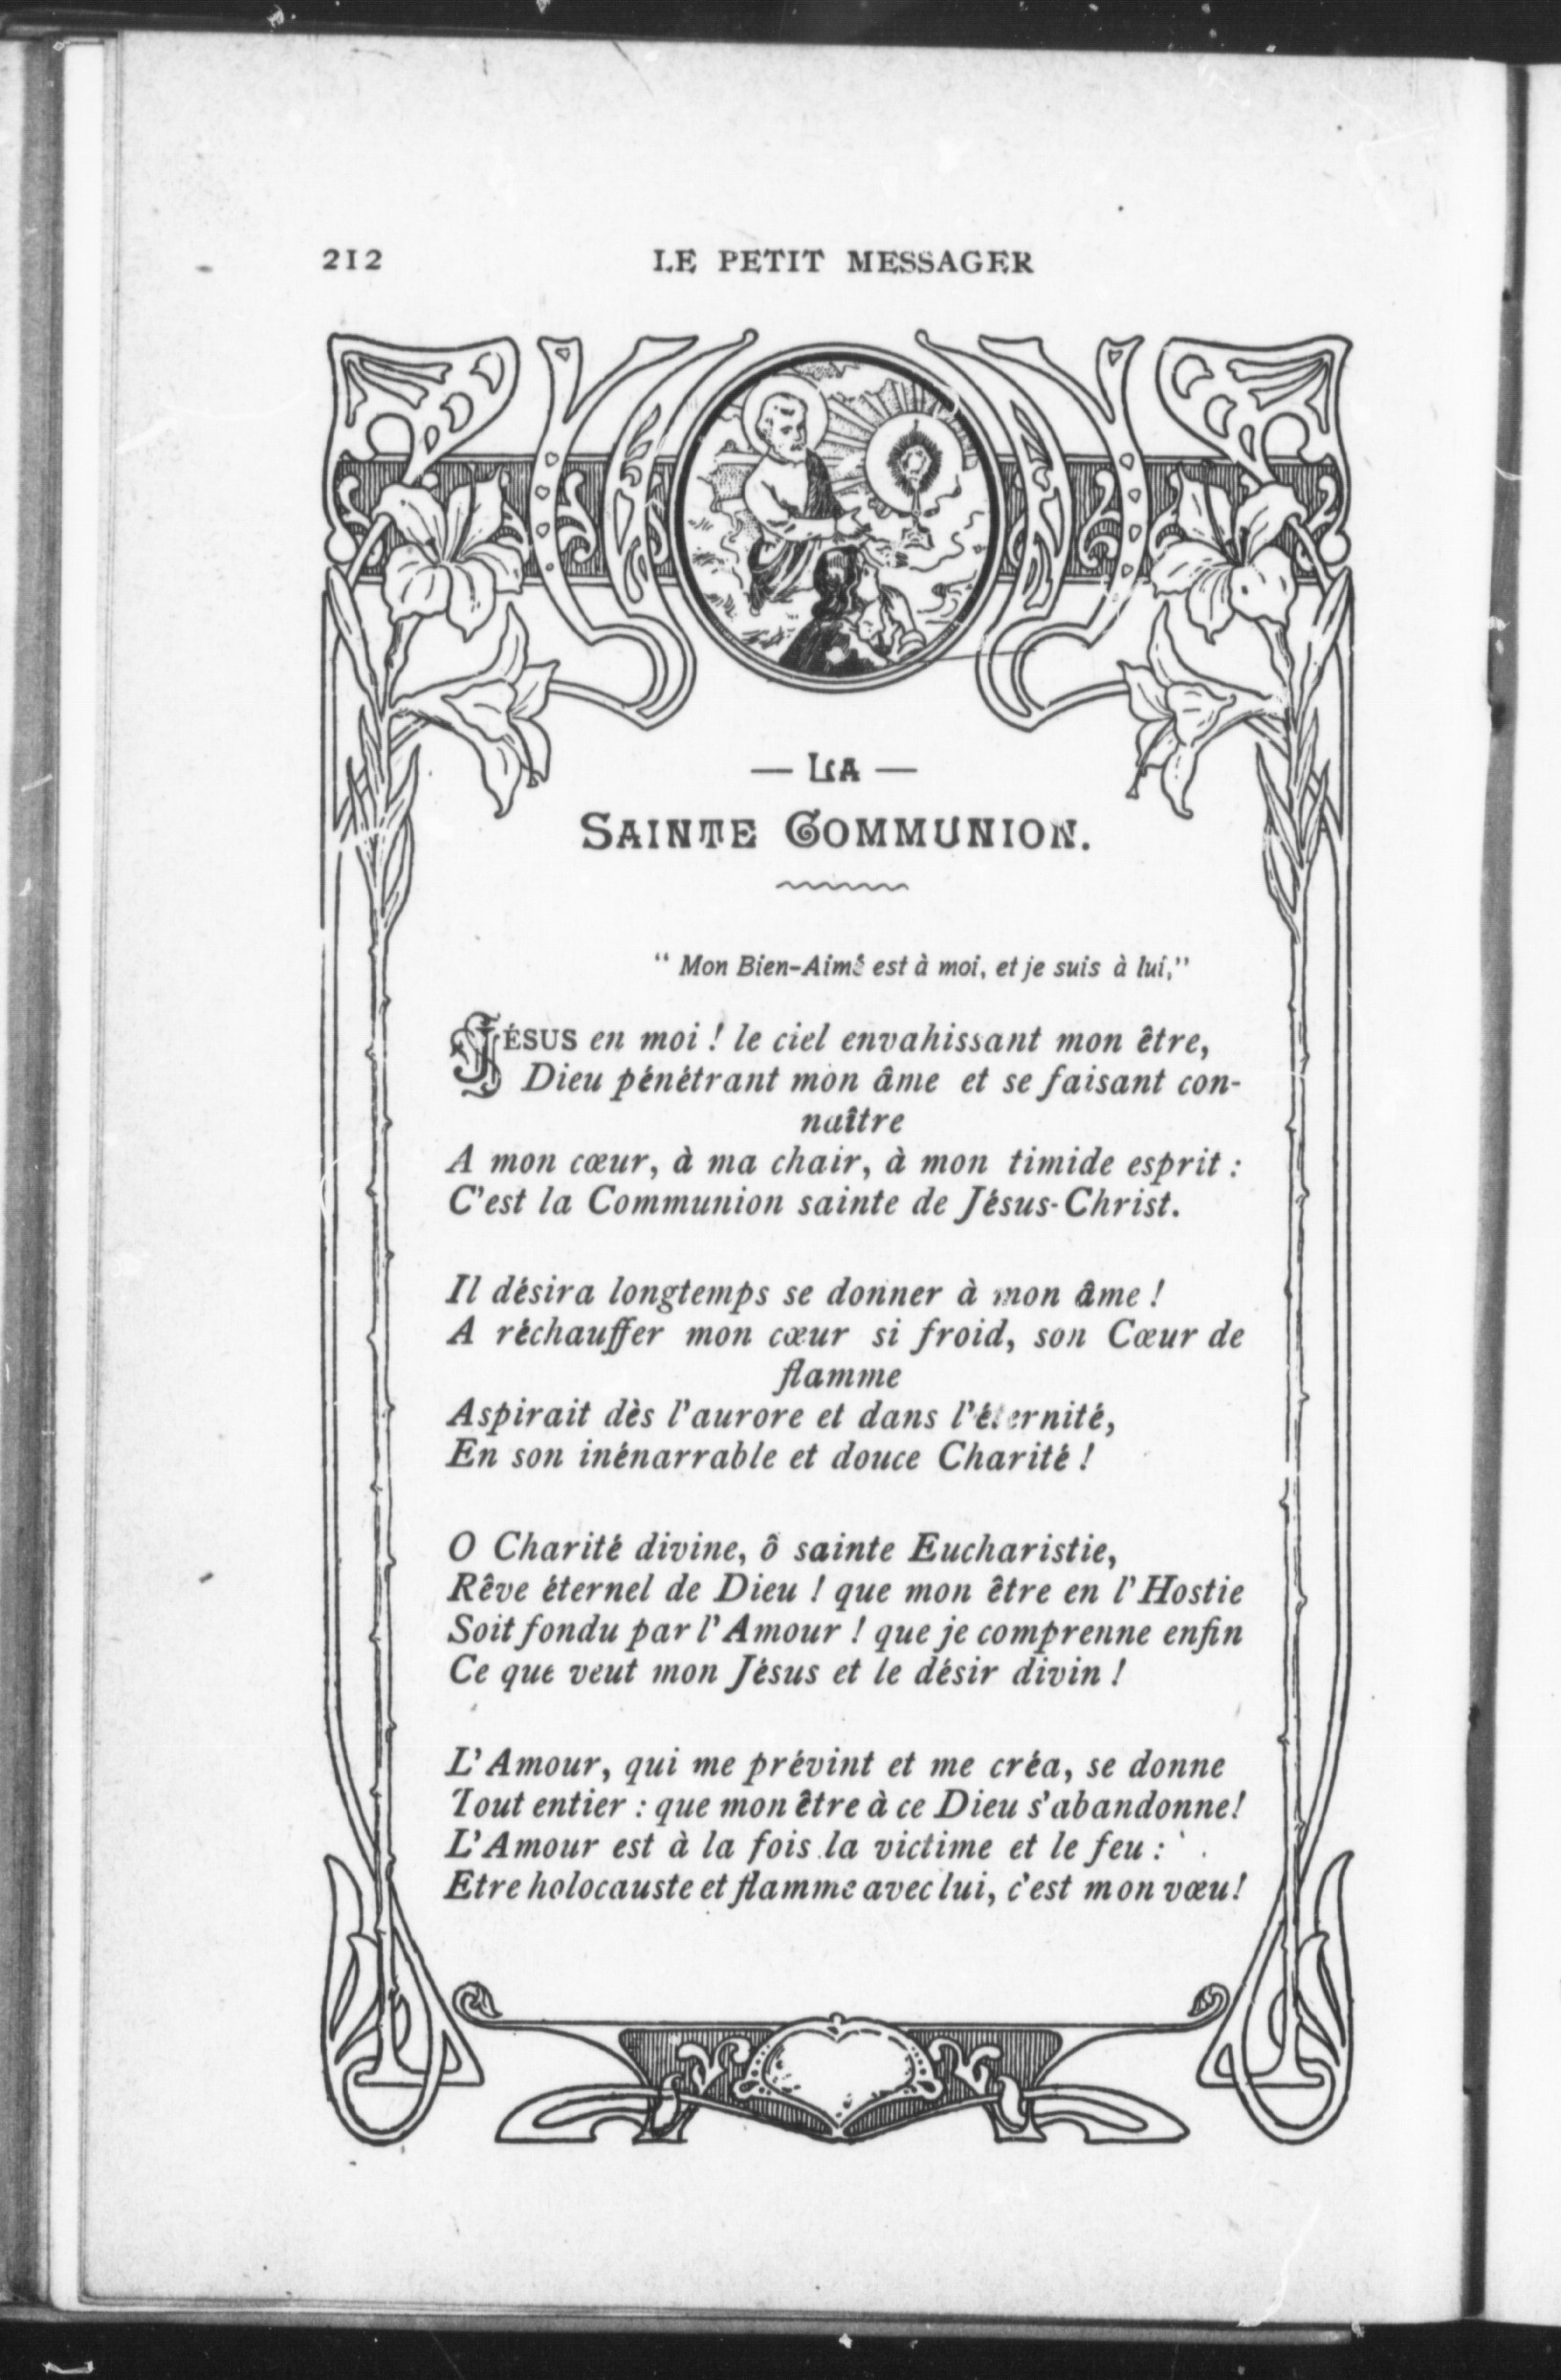 212 LE PETIT MESSAGER
— LA —
SAINTE COMMUNION.
“ Mon Bien-Aimé est à moi, et je suis à lui,”
JÉSUS en moi ! le ciel envahissant mon être,
Dieu pénétrant mon âme et se faisant con-
naître
A mon cœur, à ma chair, à mon timide esprit :
C'est la Communion sainte de Jésus-Christ.
Il désira longtemps se donner à mon âme !
A réchauffer mon cœur si froid, son Cœur de
flamme
Aspirait dès l'aurore et dans l'éternité,
En son inénarrable et douce Charité !
O Charité divine, ô sainte Eucharistie,
Rêve éternel de Dieu ! que mon être en l'Hostie
Soit fondu par l'Amour ! que je comprenne enfin
Ce que veut mon Jésus et le désir divin !
L'Amour, qui me prévint et me créa, se donne
Tout entier : que mon être à ce Dieu s'abandonne!
L'Amour est à la fois la victime et le feu :
Etre holocauste et flamme avec lui, c'est mon vœu!